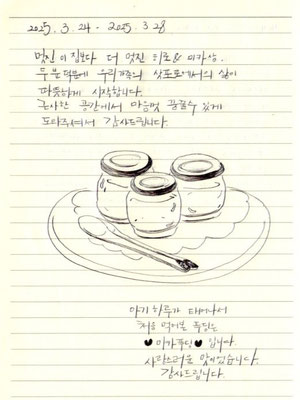 2025. 3. 24 - 2025. 3. 28
멋진 이 집보다 더 멋진 히로& 미카상.
두 분 덕분에 우리가족의 삿포로에서의 삶이
따뜻하게 시작합니다.
근사한 공간에서 마음껏 꿈꿀수 있게
도와주셔서 감사드립니다.
아기 하루가 태어나서
처음 먹어본 푹딩은
♥미카푹딩♥ 입니다.
사랑스러운 맛이었습니다.
감사드립니다.